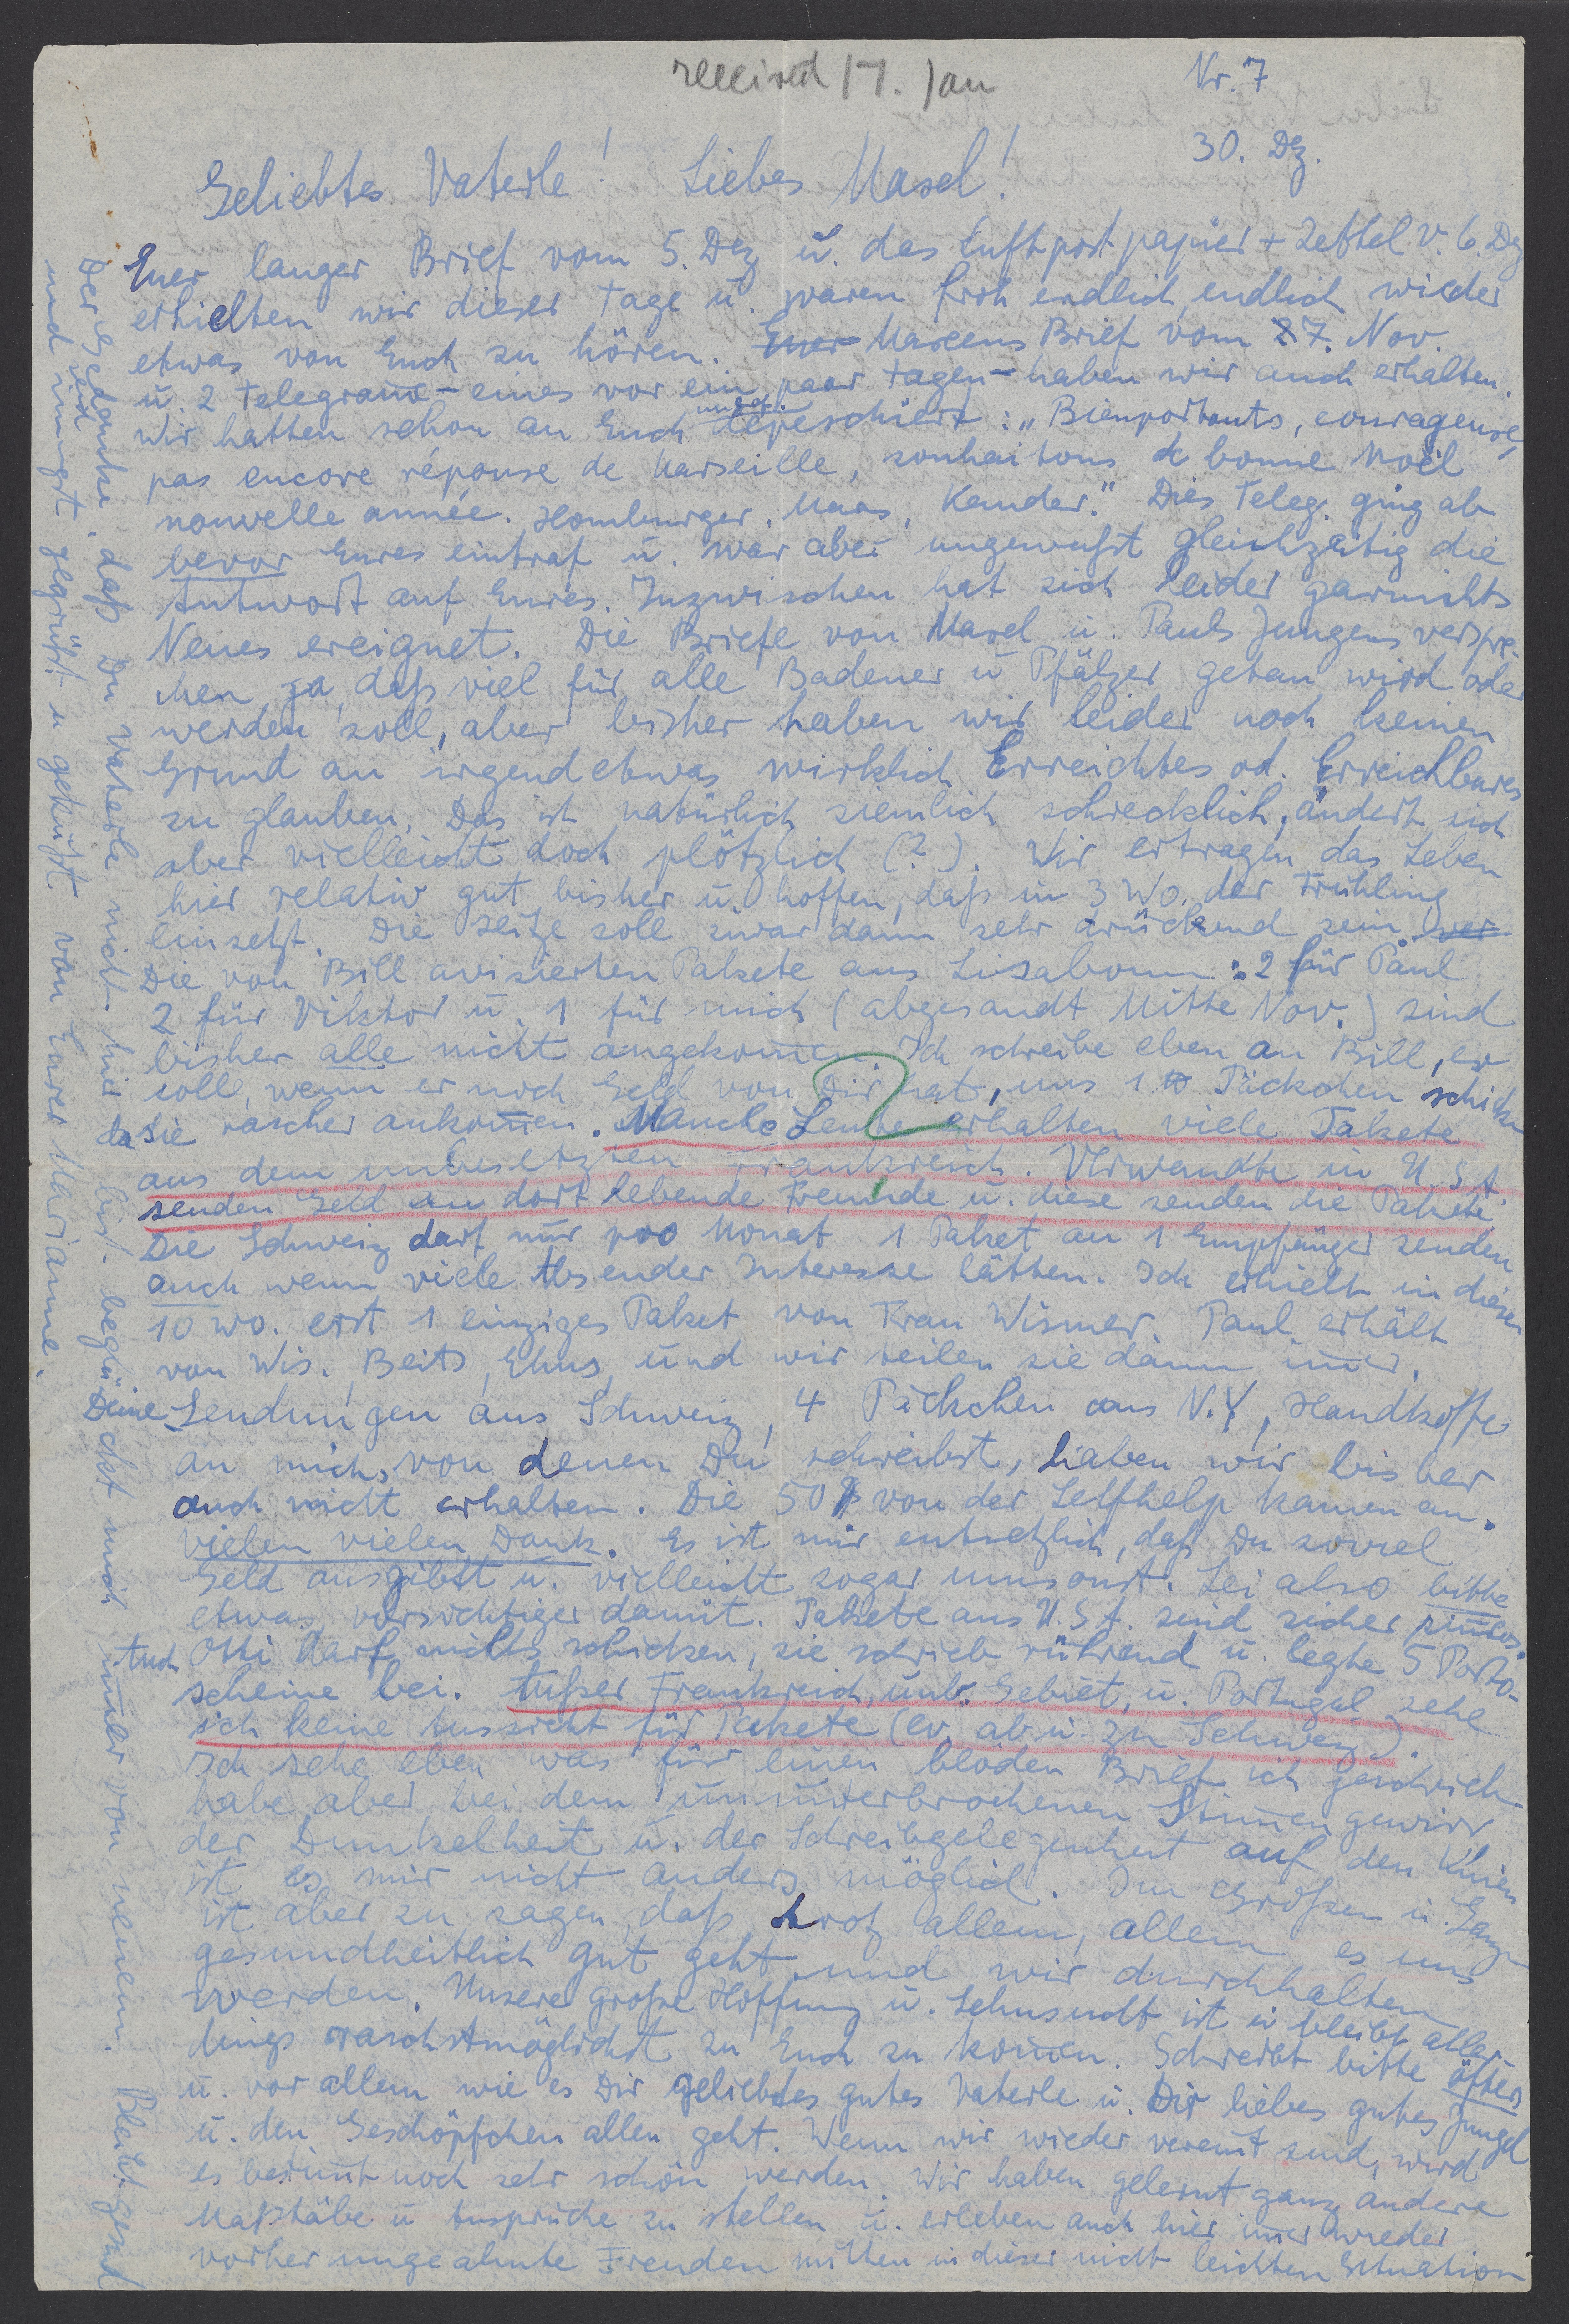 received 17. Jan
Nr. 7
30. Dez.
Geliebtes Vaterle! Liebes Masel!
Euer langer Brief vom 5. Dez u. das Luftpostpapier + Zettel v. 6. Dez
erhielten wir dieser Tage u. waren froh endlich, endlich wieder
etwas von Euch zu hören. Euer Marcens Brief vom 27. Nov.
u. 2 Telegrame - eines vor ein paar Tagen - haben wir auch erhalten.
Wir hatten schon an Euch depeschiert: "Bienportants, courageuse,
pas encore réponse de Marseille, souhaitons de bonne Noël
nouvelle année. Homburger, Maas, Kander." Dies Teleg. ging ab
bevor Eures eintraf u. war aber ungewußt gleichzeitig die
Antwort auf Eures. Inzwischen hat sich leider garnichts
Neues ereignet. Die Briefe von Masel u. Pauls Jungens verspre-
chen ja, daß viel für alle Badener u Pfälzer getan wird oder
werden soll, aber bisher haben wir leider noch keinen
Grund an irgend etwas wirklich Erreichtes od. Erreichbares
zu glauben. Das ist natürlich ziemlich schrecklich, ändert sich
aber vielleicht doch plötzlich (?). Wir ertragen das Leben
hier relativ gut bisher u. hoffen, daß in 3 Wo. der Frühling
einsetzt. Die Hitze soll zwar dann sehr drückend sein. ver
Die von Bill avisierten Pakete aus Lissabonn: 2 für Paul
2 für Viktor u. 1 für mich (abgesandt Mitte Nov.) sind
bisher alle nicht angekomen. Ich schreibe eben an Bill, er
soll, wenn er noch Geld von Dir hat, uns 1 Päckchen schicken
da sie rascher ankomen. Manche Leute erhalten viele Pakete
aus dem unbesetzten Frankreich. Verwandte in U.S.A.
senden Geld an dort lebende Freunde u. diese senden die Pakete
Die Schweiz darf nur pro Monat 1 Paket an 1 Empfänger senden
auch wenn viele Absender Interesse hätten. Ich erhielt in diesen
10 Wo. erst 1 einziges Paket von Frau Wismer. Paul erhält
von Wis., Beits, Ehns, und wir teilen sie dann imer.
Deine Sendungen aus Schweiz, 4 Päckchen aus N.Y., Handkoffer
an mich, von denen Du schreibst, haben wir bisher
auch nicht erhalten. Die 50 $ von der Selfhelp kamen an.
vielen vielen Dank. Es ist mir entsetzlich, daß Du soviel
Geld ausgibst u. vielleicht sogar umsonst. Sei also bitte
etwas vorsichtiger damit. Pakete aus U.S.A. sind sicher sinlos.
Auch Otti darf nichts schicken, sie schrieb rührend u. legte 5 Porto-
scheine bei. Außer Frankreich, unb. Gebiet, u. Portugal sehe
ich keine Aussicht für Pakete (ev. ab u. zu Schweiz).
Ich sehe eben was für einen blöden Brief ich geschrieb.
habe, aber bei dem ununterbrochenen Stimengewirr
der Dunkelheit u. der Schreibgelegenheit auf den Knien
ist es mir nicht anders möglich. Im Großen u. Ganzen
ist aber zu sagen, daß trotz allem, allem es uns
gesundheitlich gut geht und wir durchhalten
werden. Unsere große Hoffnung u. Sehnsucht ist u bleibt aller-
dings raschstmöglichst zu Euch zu komen. Schreibt bitte öfters
u. vor allem wie es Dir geliebtes gutes Vaterle u. Dir liebes gutes Jungel
u. den Geschöpfchen allen geht. Wenn wir wieder vereint sind, wird
es bestimt noch sehr schön werden. Wir haben gelernt ganz andere
Maßtäbe u Ansprüche zu stellen u. erleben auch hier imer wieder
vorher ungeahnte Freuden mitten in dieser nicht leichten Situation
Der Gedanke, daß Du Vaterle nicht hier bist beglückt mich imer von neuem. Bleibt gesund
und seid innigst gegrüßt u geküßt von Eurer Marianne.